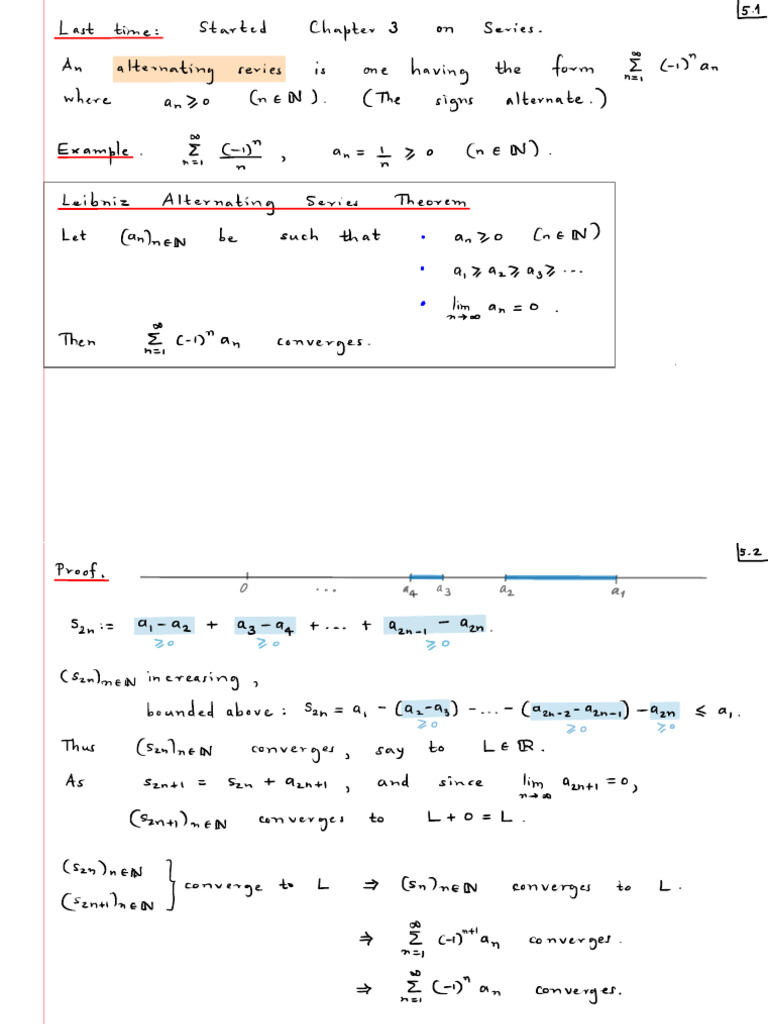 5.1
Last time: Started Chapter 3 on Series.
An alternating series is one having the form ∑_{n=1}^{∞} (-1)^n a_n
where a_n ⩾ 0 (n ∈ ℕ). (The signs alternate.)
Example. ∑_{n=1}^{∞} (-1)^n/n , a_n = 1/n ⩾ 0 (n ∈ ℕ).
Leibniz Alternating Series Theorem
Let (a_n)_{n∈ℕ} be such that • a_n ⩾ 0 (n ∈ ℕ)
• a_1 ⩾ a_2 ⩾ a_3 ⩾ ...
• lim_{n→∞} a_n = 0 .
Then ∑_{n=1}^{∞} (-1)^n a_n converges.
5.2
Proof.
0 ... a_4 a_3 a_2 a_1
s_{2n} := a_1 - a_2 + a_3 - a_4 + ... + a_{2n-1} - a_{2n}.
⩾0 ⩾0 ⩾0
(s_{2n})_{n∈ℕ} increasing,
bounded above: s_{2n} = a_1 - (a_2 - a_3) - ... - (a_{2n-2} - a_{2n-1}) - a_{2n} ⩽ a_1.
⩾0 ⩾0 ⩾0
Thus (s_{2n})_{n∈ℕ} converges, say to L ∈ ℝ.
As s_{2n+1} = s_{2n} + a_{2n+1} , and since lim_{n→∞} a_{2n+1} = 0,
(s_{2n+1})_{n∈ℕ} converges to L + 0 = L.
(s_{2n})_{n∈ℕ}
(s_{2n+1})_{n∈ℕ} } converge to L ⇒ (s_n)_{n∈ℕ} converges to L.
⇒ ∑_{n=1}^{∞} (-1)^{n+1} a_n converges.
⇒ ∑_{n=1}^{∞} (-1)^n a_n converges.